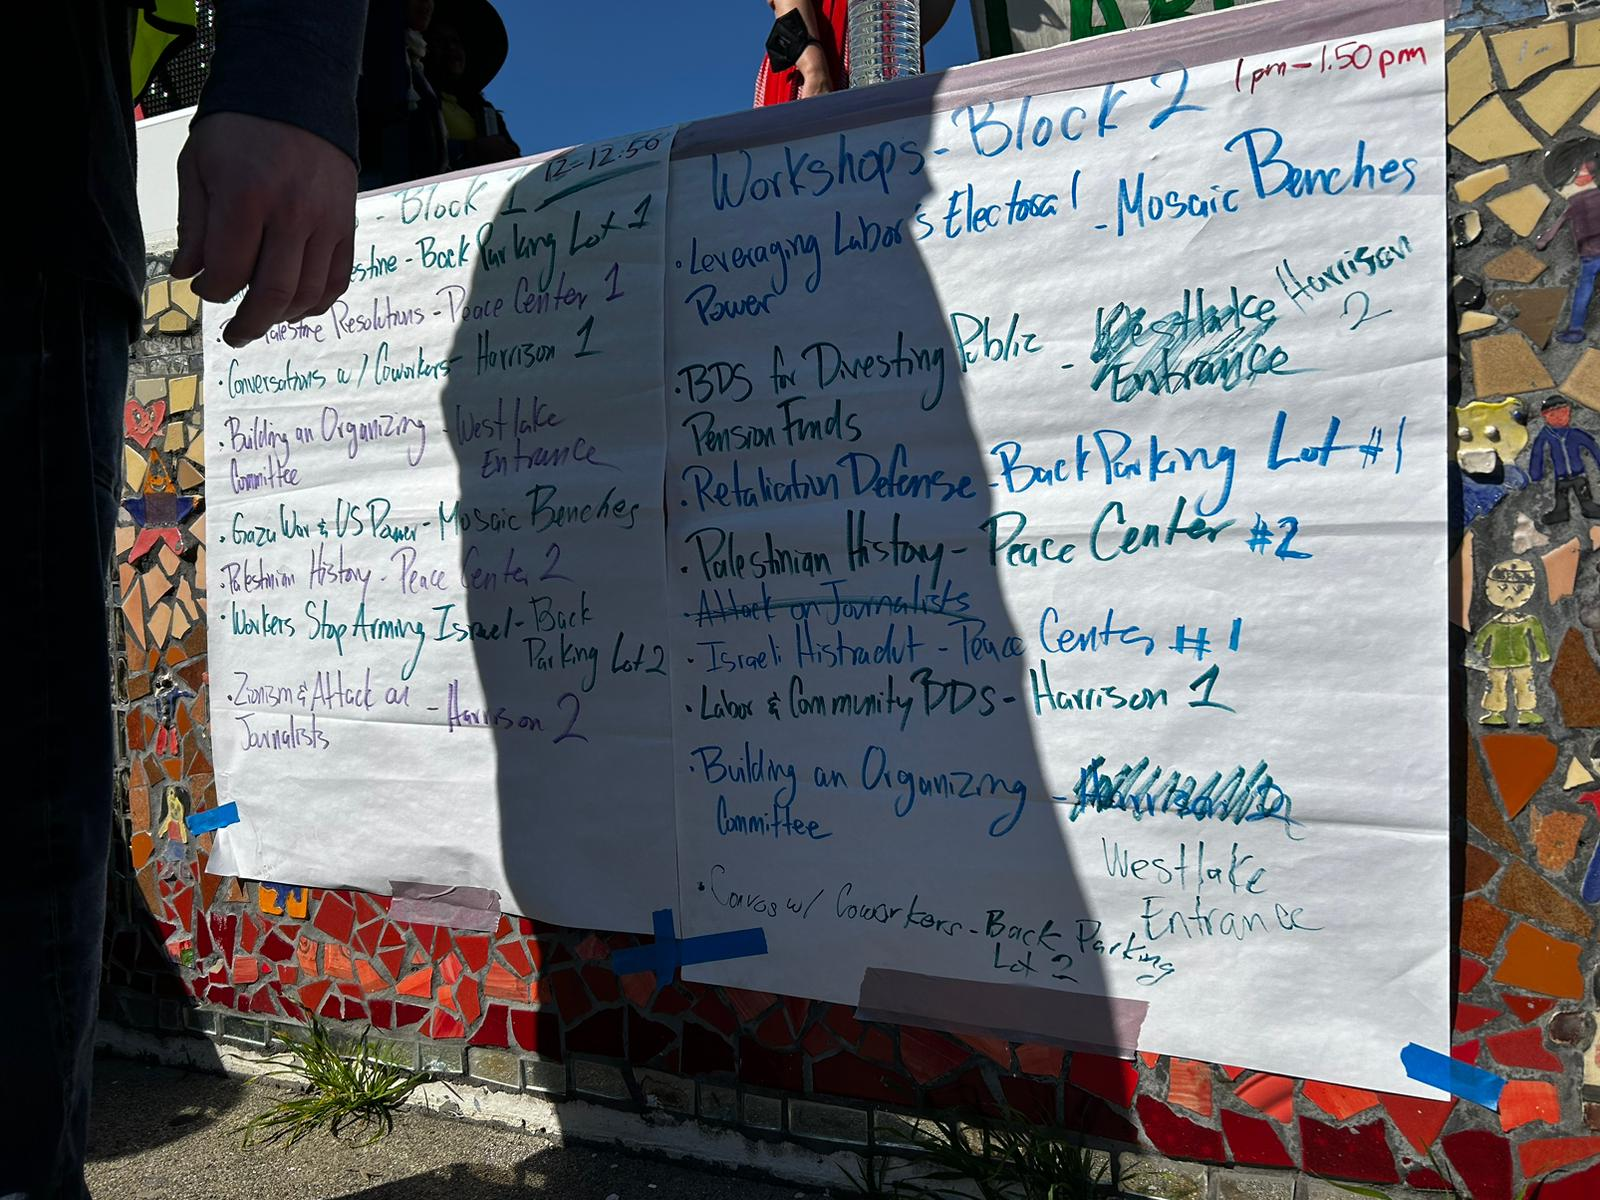 - Block 1 12-12:50
- Back Parking Lot 1
Palestine Resolutions - Peace Center 1
• Conversations w/ Coworkers - Harrison 1
• Building an Organizing - Westlake
Committee Entrance
• Gaza War & US Power - Mosaic Benches
• Palestinian History - Peace Center 2
• Workers Stop Arming Israel - Back
Parking Lot 2
• Zionism & Attack on - Harrison 2
Journalists
1pm-1:50pm
Workshops - Block 2
• Leveraging Labor's Electoral - Mosaic Benches
Power
• BDS for Divesting Public - Westlake Harrison
Entrance 2
Pension Funds
• Retaliation Defense - Back Parking Lot #1
• Palestinian History - Peace Center #2
• Attack on Journalists
• Israeli Histradut - Peace Center #1
• Labor & Community BDS - Harrison 1
• Building an Organizing - Harrison 2
Committee
Westlake
Entrance
• Convos w/ Coworkers - Back Parking
Lot 2